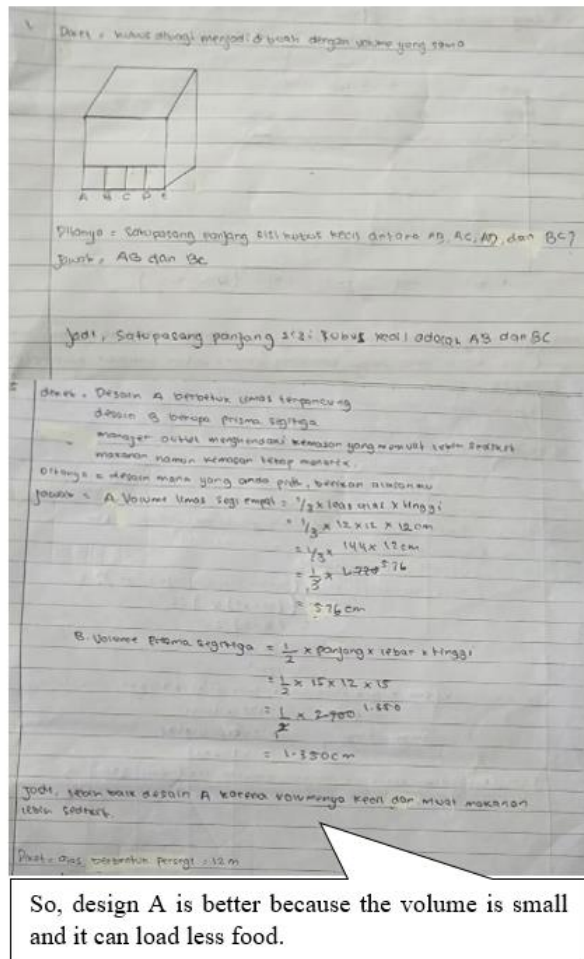 1
Diket = kubus dibagi menjadi 8 buah dengan volume yang sama
A B C D E
Ditanya = Satu pasang panjang sisi kubus kecil antara AB, AC, AD, dan BC?
Jawab = AB dan BC
Jadi, Satu pasang panjang sisi kubus kecil adalah AB dan BC
diket = Desain A berbetuk limas terpancung
desain B berupa prisma segitiga
manajer outlet menghendaki kemasan yang memuat lebih sedikit
makanan namun kemasan tetap menarik.
Ditanya = desain mana yang anda pilih, berikan alasanmu
Jawab = A. Volume limas segi empat = 1/3 x luas alas x tinggi
= 1/3 x 12 x 12 x 12 cm
= 1/3 x 144 x 12 cm
= 1/3 x 576
= 576 cm
B. Volume Prisma segitiga = 1/2 x panjang x lebar x tinggi
= 1/2 x 15 x 12 x 15
= 1/2 x 2.700 1.350
= 1.350 cm
Jadi, lebih baik desain A karena volumenya kecil dan muat makanan
lebih sedikit.
Diket = berbentuk persegi = 12 m
So, design A is better because the volume is small
and it can load less food.